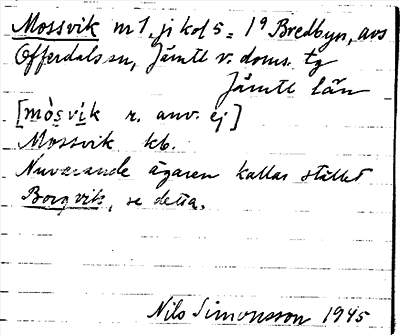 Mossvik m 1, j kol 5 = 1ª Bredbyn, avs
Offerdals sn, Jämtl v. doms. tg
Jämtl län
[mòsvik r. anv. ej]
Mossvik kb.
Nuvarande ägaren kallar stället
Borgvik, se detta.
Nils Simonsson 1945